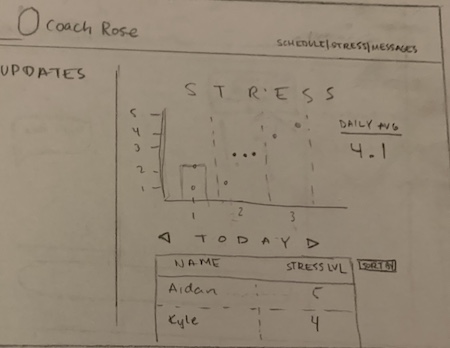 Coach Rose
SCHEDULE/STRESS/MESSAGES
UPDATES
STRESS
5
4
3
2
1
1 2 3
DAILY AVG
4.1
TODAY
NAME STRESS LVL
SORT BY
Aidan 5
Kyle 4